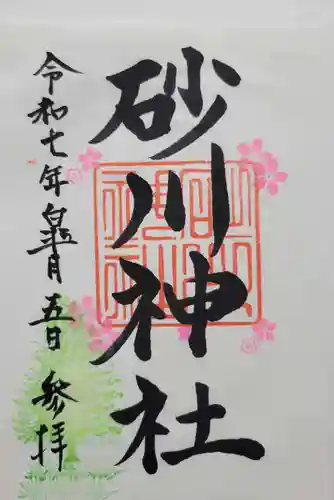 砂川神社
令和七年皐月五日 参拝